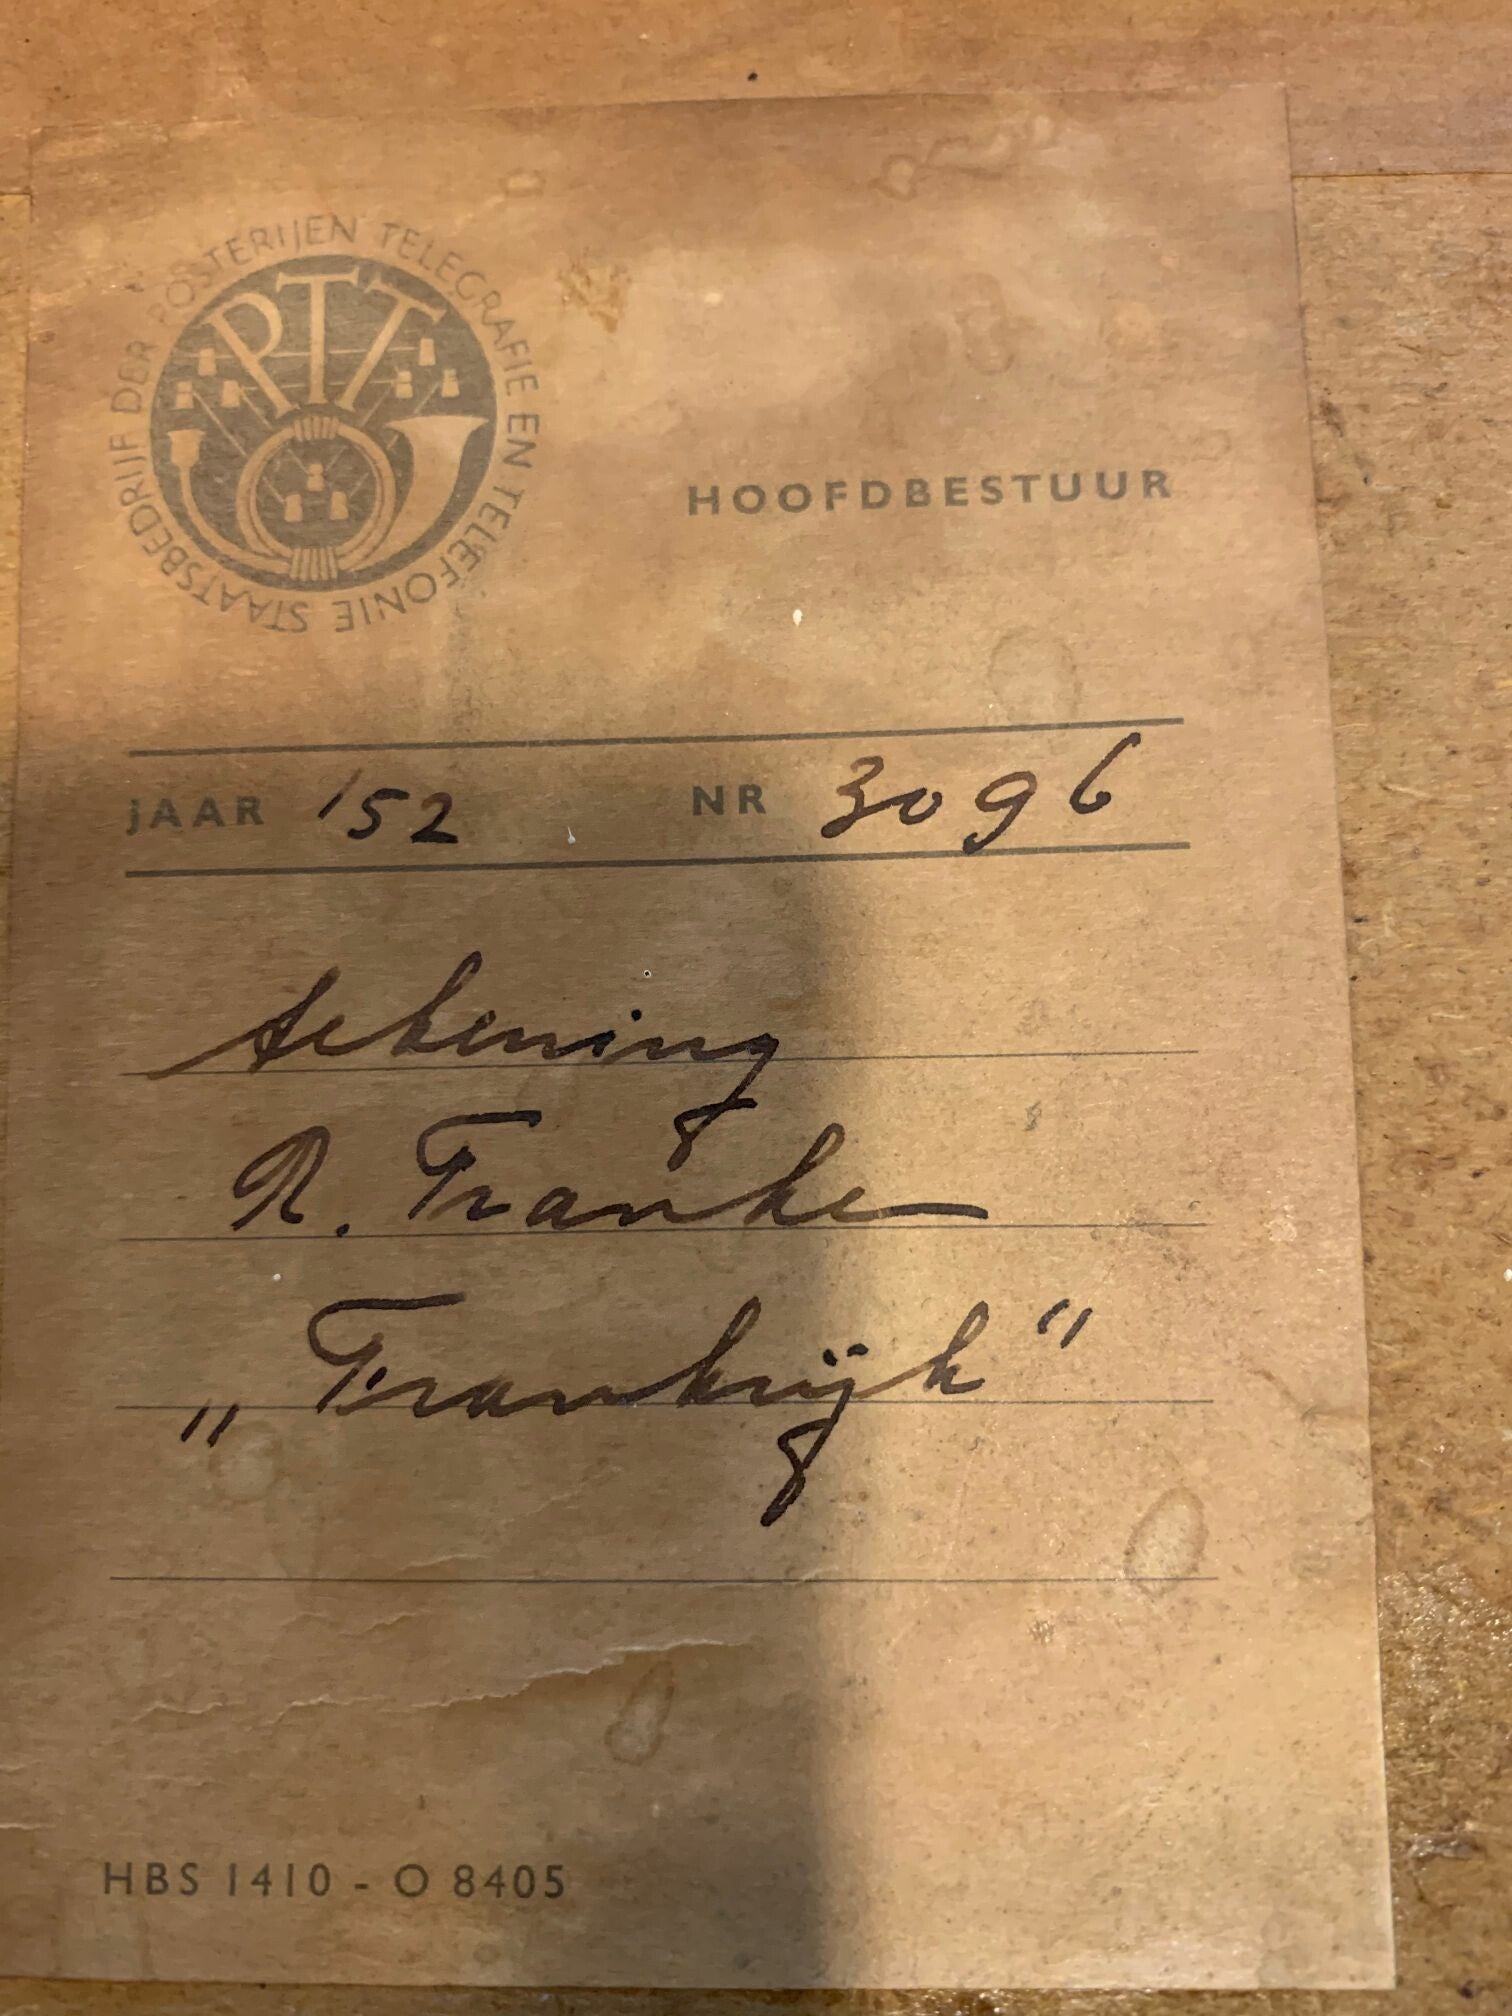 STAATSBEDRIJF DER POSTERIJEN TELEGRAFIE EN TELEFONIE
PTT
HOOFDBESTUUR
JAAR '52 NR 3096
tekening
R. Franke
„Frankrijk"
HBS 1410 - O 8405